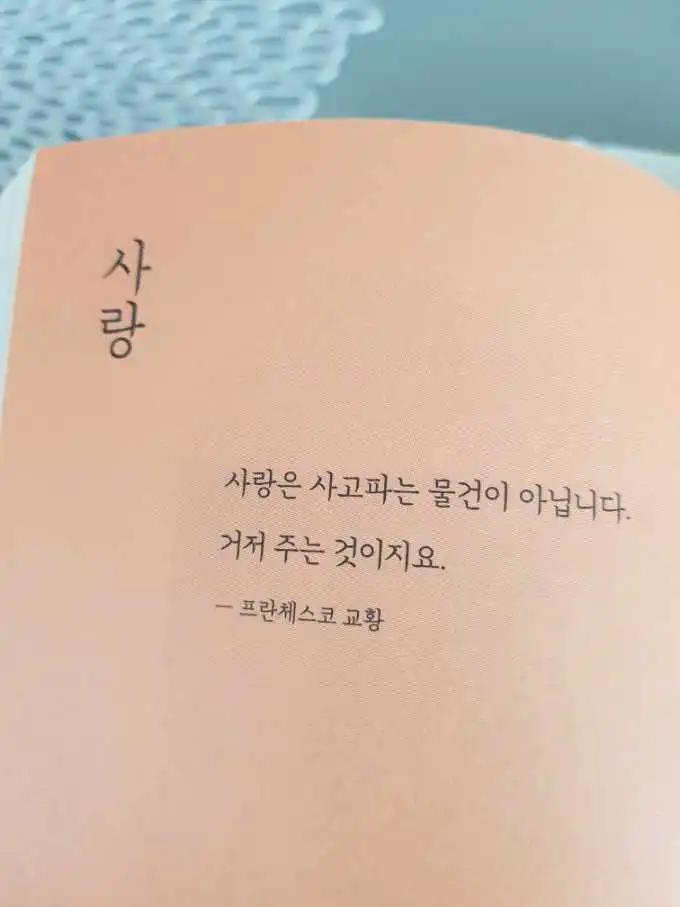 사랑
사랑은 사고파는 물건이 아닙니다.
거저 주는 것이지요.
– 프란체스코 교황